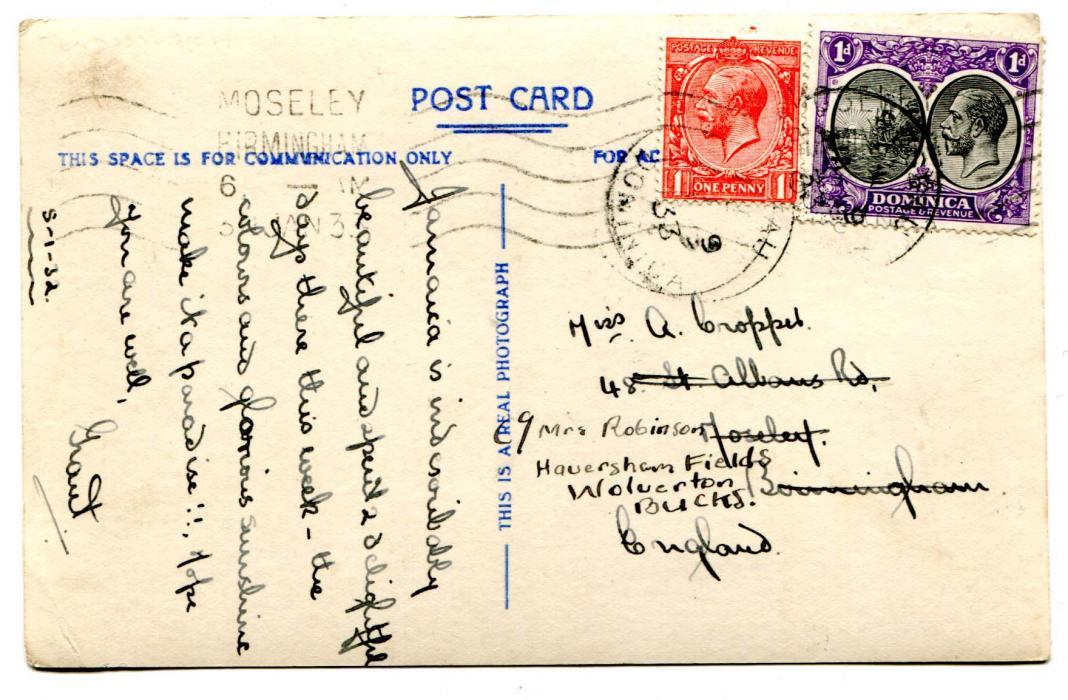 MOSELEY
BIRMINGHAM
6 - AM
JAN
POST CARD
THIS SPACE IS FOR COMMUNICATION ONLY
FOR AD
POSTAGE REVENUE
1 ONE PENNY 1
1d 1d
DOMINICA
POSTAGE & REVENUE
DOMINICA
9
33
Jamaica is indescribably
beautiful and spent 2 delightful
days there this week - the
colours and glorious sunshine
make it a paradise!!. Hope
you are well,
Grant
5-1-32.
THIS IS A REAL PHOTOGRAPH
Miss A. Cropper.
48 St. Albans Rd,
Moseley.
Birmingham
England.
c/o Mrs Robinson
Haversham Fields
Wolverton
BUCKS.